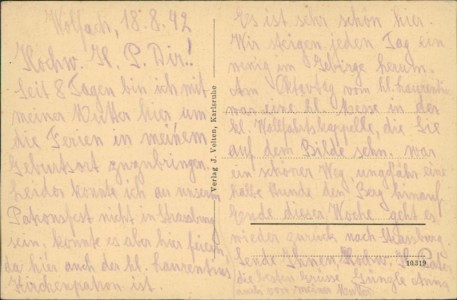 Wolfach, 18.8.42
Hochw. H. P. Dir!
Seit 8 Tagen bin ich mit
meiner Mutter hier um
die Ferien in meinem
Geburtsort zuzubringen.
Leider konnte ich an unserm
Patronsfest nicht in Strassburg
sein. konnte es aber hier feiern
da hier auch der hl. Laurentius
Kirchenpatron ist.
Verlag J. Velten, Karlsruhe
Es ist sehr schön hier.
Wir steigen jeden Tag ein
wenig im Gebirge herum.
Am Oktavtag vom hl. Laurentius
war eine hl. Messe in der
kl. Wallfahrtskappelle, die Sie
auf dem Bilde sehn. war
ein schöner Weg ungefähr eine
halbe Stunde den Berg hinauf
Ende dieser Woche geht es
wieder zurück nach Strassburg.
Sende Ihnen Hochw. H. Pater
die besten Grüsse
auch von meiner Mutter
10319